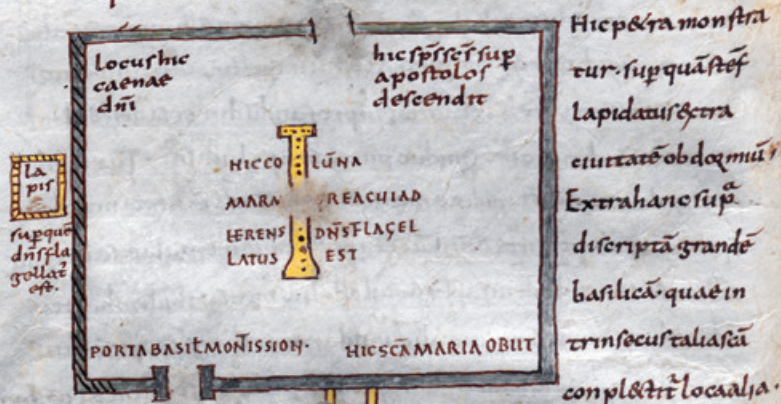 locus hic
caenae
dn̄i
hic sp̄s sc̄s sup̄
apostolos
descendit
la
pis
sup quē
dn̄s fla
gellat̄
est.
HIC CO LŪNA
MARM REA CUI AD
HERENS DN̄S FLAGEL
LATUS EST
PORTA BASIL̄ MONT̄IS SION·
HIC SC̄A MARIA OBIIT
Hic petra monstra
tur· sup quā stef̄
lapidatus extra
ciuitatē obdormiuı̄
Extra hanc sup̄ᵃ
discriptā grandē
basilicā· quae in
trinsecus talia sc̄ā
conplectit̄ loca alia·